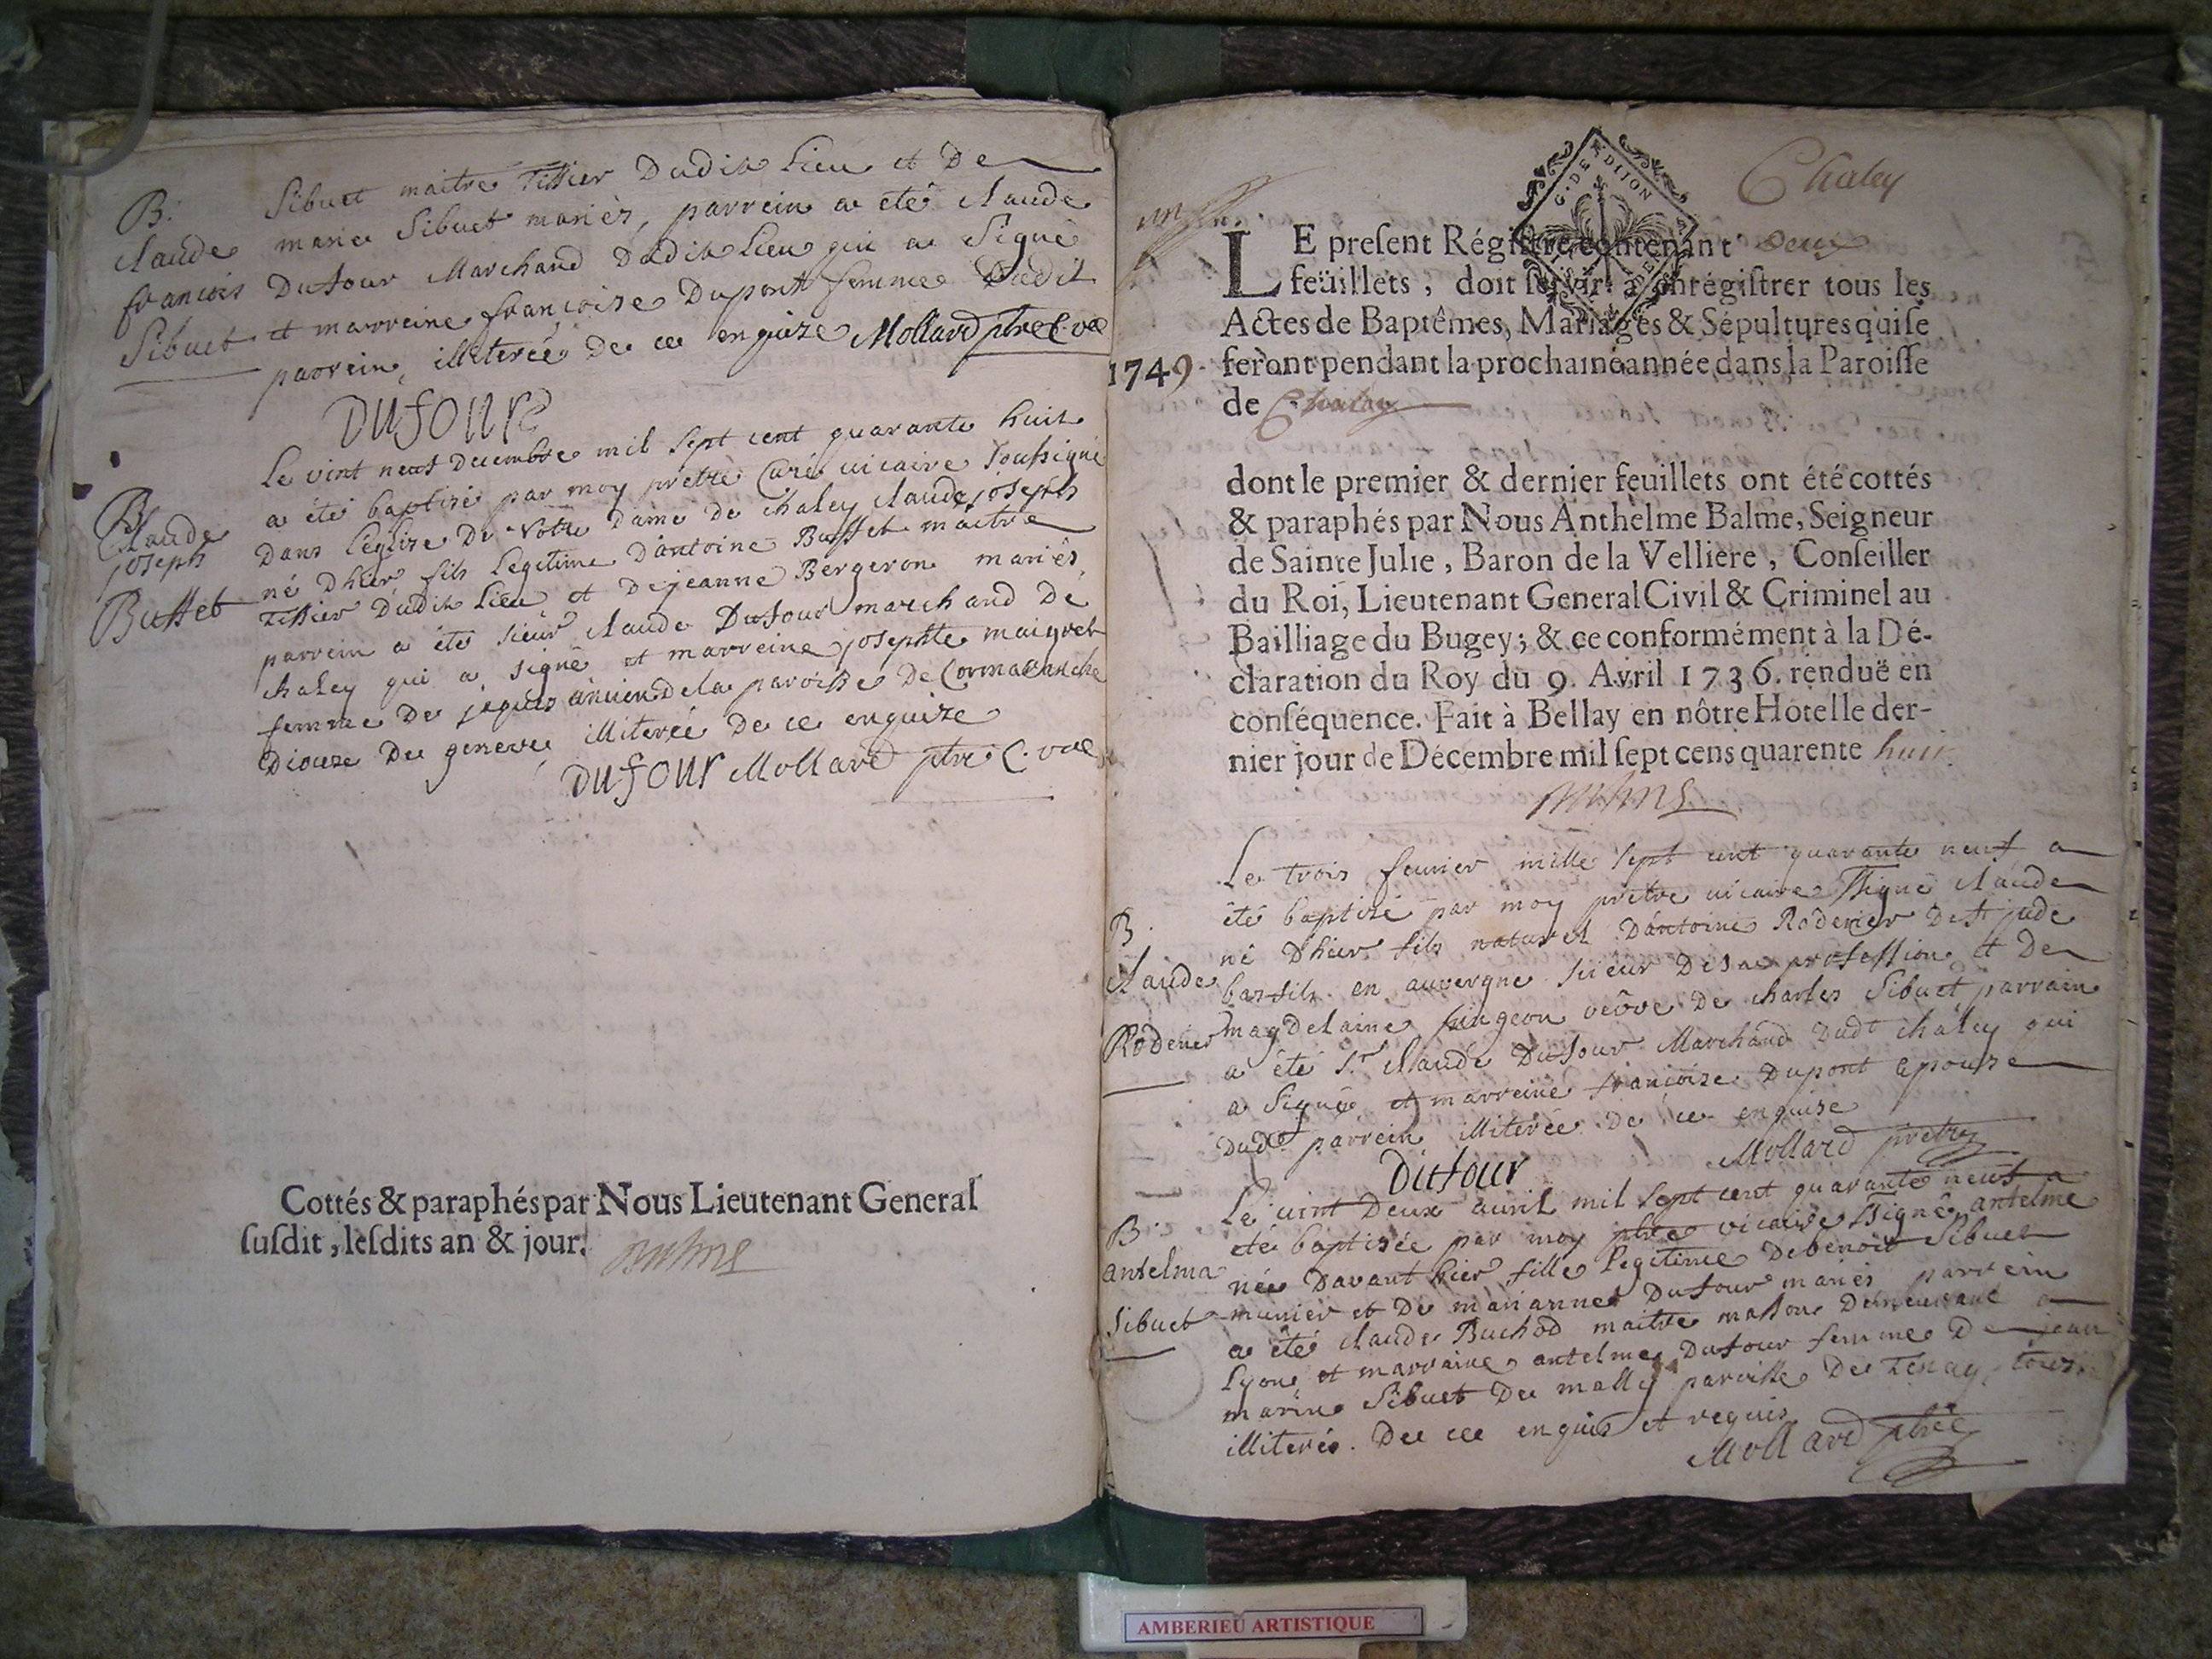 B. Claude francois Sibuet
Sibuet maitre Tissier Dudit Lieu et De
marie Sibuet mariés, parrein a été Claude
Dufour Marchand Dudit Lieu qui a Signé
et marreine francoise Dupont femme Dudit
parrein, illiterée De ce enquize Mollard ptre C. vre
DUfOUR
B. Claude joseph Buffet
Le vint neuf Decembre mil Sept cent quarante huit
a été baptisé par moy pretre Curé vicaire Soussigné
Dans Leglise De Notre Dame De chaley Claude joseph
né Dhier fils Legitime Dantoine Buffet maitre
Tissier Dudit Lieu et De jeanne Bergeron mariés
parrein a été sieur Claude Dufour marchand De
chaley qui a signé et marreine josephte maigret
femme De jaques ancien De la paroisse De Cormaranche
Dioceze De geneve illiterée De ce enquize
DUfOUR Mollard ptre C. vre
Cottés & paraphés par Nous Lieutenant General
susdit, lesdits an & jour.
Balme
G. DE DIJON
Chaley
LE present Régistre, contenant Deux
feüillets, doit servir à enregistrer tous les
Actes de Baptêmes, Mariages & Sépultures qui se
1749. feront pendant la prochaine année dans la Paroisse
de Chaley
dont le premier & dernier feuillets ont été cottés
& paraphés par Nous Anthelme Balme, Seigneur
de Sainte Julie, Baron de la Velliere, Conseiller
du Roi, Lieutenant General Civil & Criminel au
Bailliage du Bugey; & ce conformément à la Dé-
claration du Roy du 9. Avril 1736. renduë en
conséquence. Fait à Bellay en nôtre Hôtel le der-
nier jour de Décembre mil sept cens quarente huit.
Balme
B. Claude Rodener
Le trois fevrier mille Sept cent quarante neuf a
été baptisé par moy pretre vicaire Ssigné Claude
né Dhier fils naturel Dantoine Rodener De St jude
en auvergne scieur De sa profession et De
magDelaine veûve De charles Sibuet parrain
a été Sr Claude Dufour Marchand Dudt chaley qui
a Signé et marreine francoise Dupont epouse
Dudt parrein illiterée De ce enquise
Dufour Mollard pretre
B. antelma Sibuet
Le vint Deux avril mil Sept cent quarante neuf a
eté baptisée par moy ptre vicaire Ssigné antelme
née Davant hier fille Legitime De benoit Sibuet
munier et De marianne Dufour mariés parrein
a été Claude Buchod maitre masson Demeurant a
Lyon et marraine antelme Dufour femme De jean
marin Sibuet De malix paroisse De Tenay tous
illiterés. De ce enquis et requis
Mollard ptre
AMBERIEU ARTISTIQUE